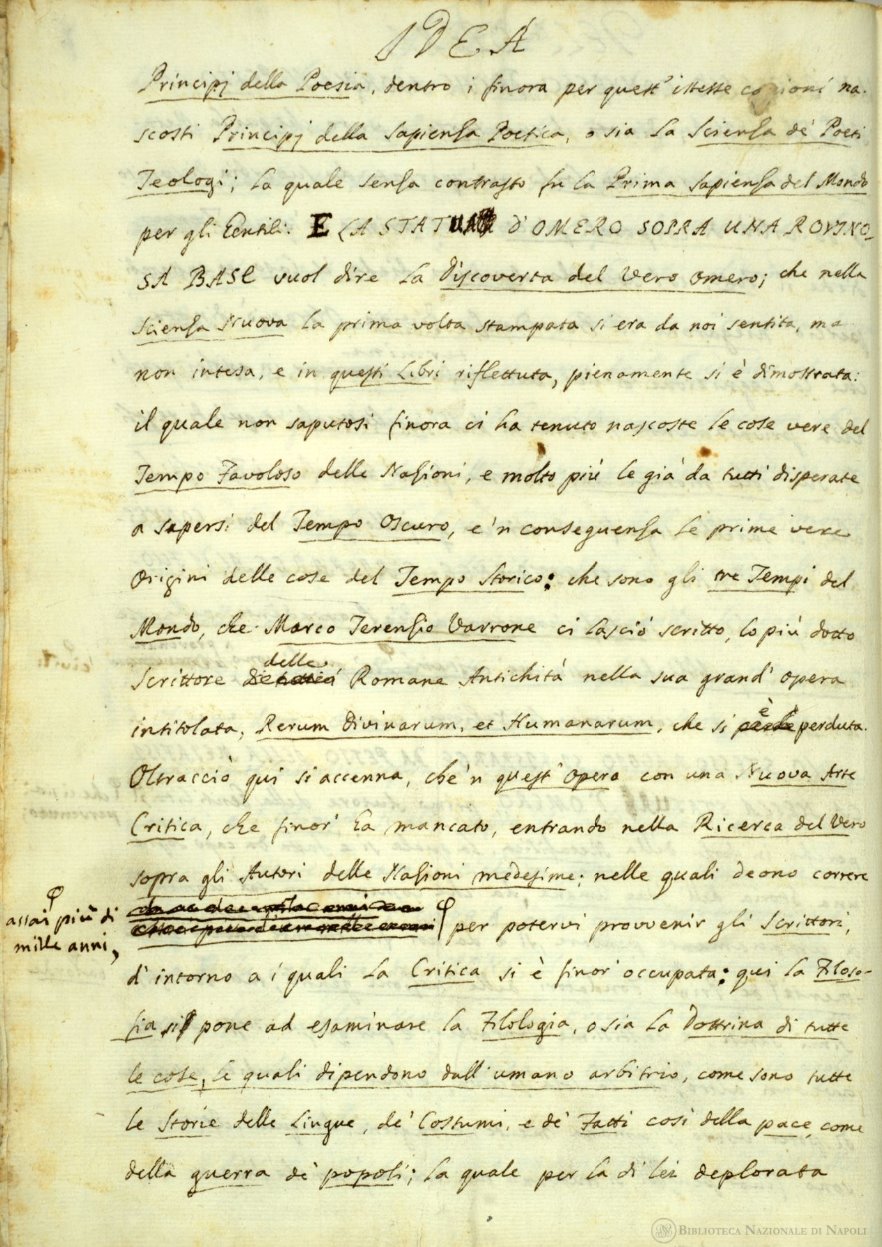 IDEA
Principj della Poesia, dentro i finora per quest' istesse cagioni na-
scosti Principj della Sapienza Poetica, o sia la Scienza de' Poeti
Teologi; la quale senza contrasto fu la Prima Sapienza del Mondo
per gli Gentili. E LA STATUA d' OMERO SOPRA UNA ROVINO-
SA BASE vuol dire la Discoverta del Vero Omero; che nella
Scienza Nuova la prima volta stampata si era da noi sentita, ma
non intesa, e in questi Libri riflettuta, pienamente si è dimostrata:
il quale non saputosi finora ci ha tenuto nascoste le cose vere del
Tempo Favoloso delle Nazioni, e molto più le già da tutti disperate
a sapersi del Tempo Oscuro, e 'n conseguenza le prime vere
Origini delle cose del Tempo Storico: che sono gli tre Tempi del
Mondo, che Marco Terenzio Varrone ci lasciò scritto, lo più dotto
Scrittore delle Romane Antichità nella sua grand' opera
intitolata, Rerum Divinarum, et Humanarum, che si è perduta.
Oltracciò qui si accenna, che 'n quest' Opera con una Nuova Arte
Critica, che finor' ha mancato, entrando nella Ricerca del Vero
sopra gli Autori delle Nazioni medesime; nelle quali deono correre
assai più di
mille anni,
per potervi provvenir gli Scrittori,
d' intorno a i quali la Critica si è finor' occupata: qui la Filoso-
fia si pone ad esaminare la Filologia, o sia la Dottrina di tutte
le cose, le quali dipendono dall' umano arbitrio, come sono tutte
le Storie delle Lingue, de' Costumi, e de' Fatti così della pace, come
della guerra de' popoli; la quale per la di lei deplorata
BIBLIOTECA NAZIONALE DI NAPOLI